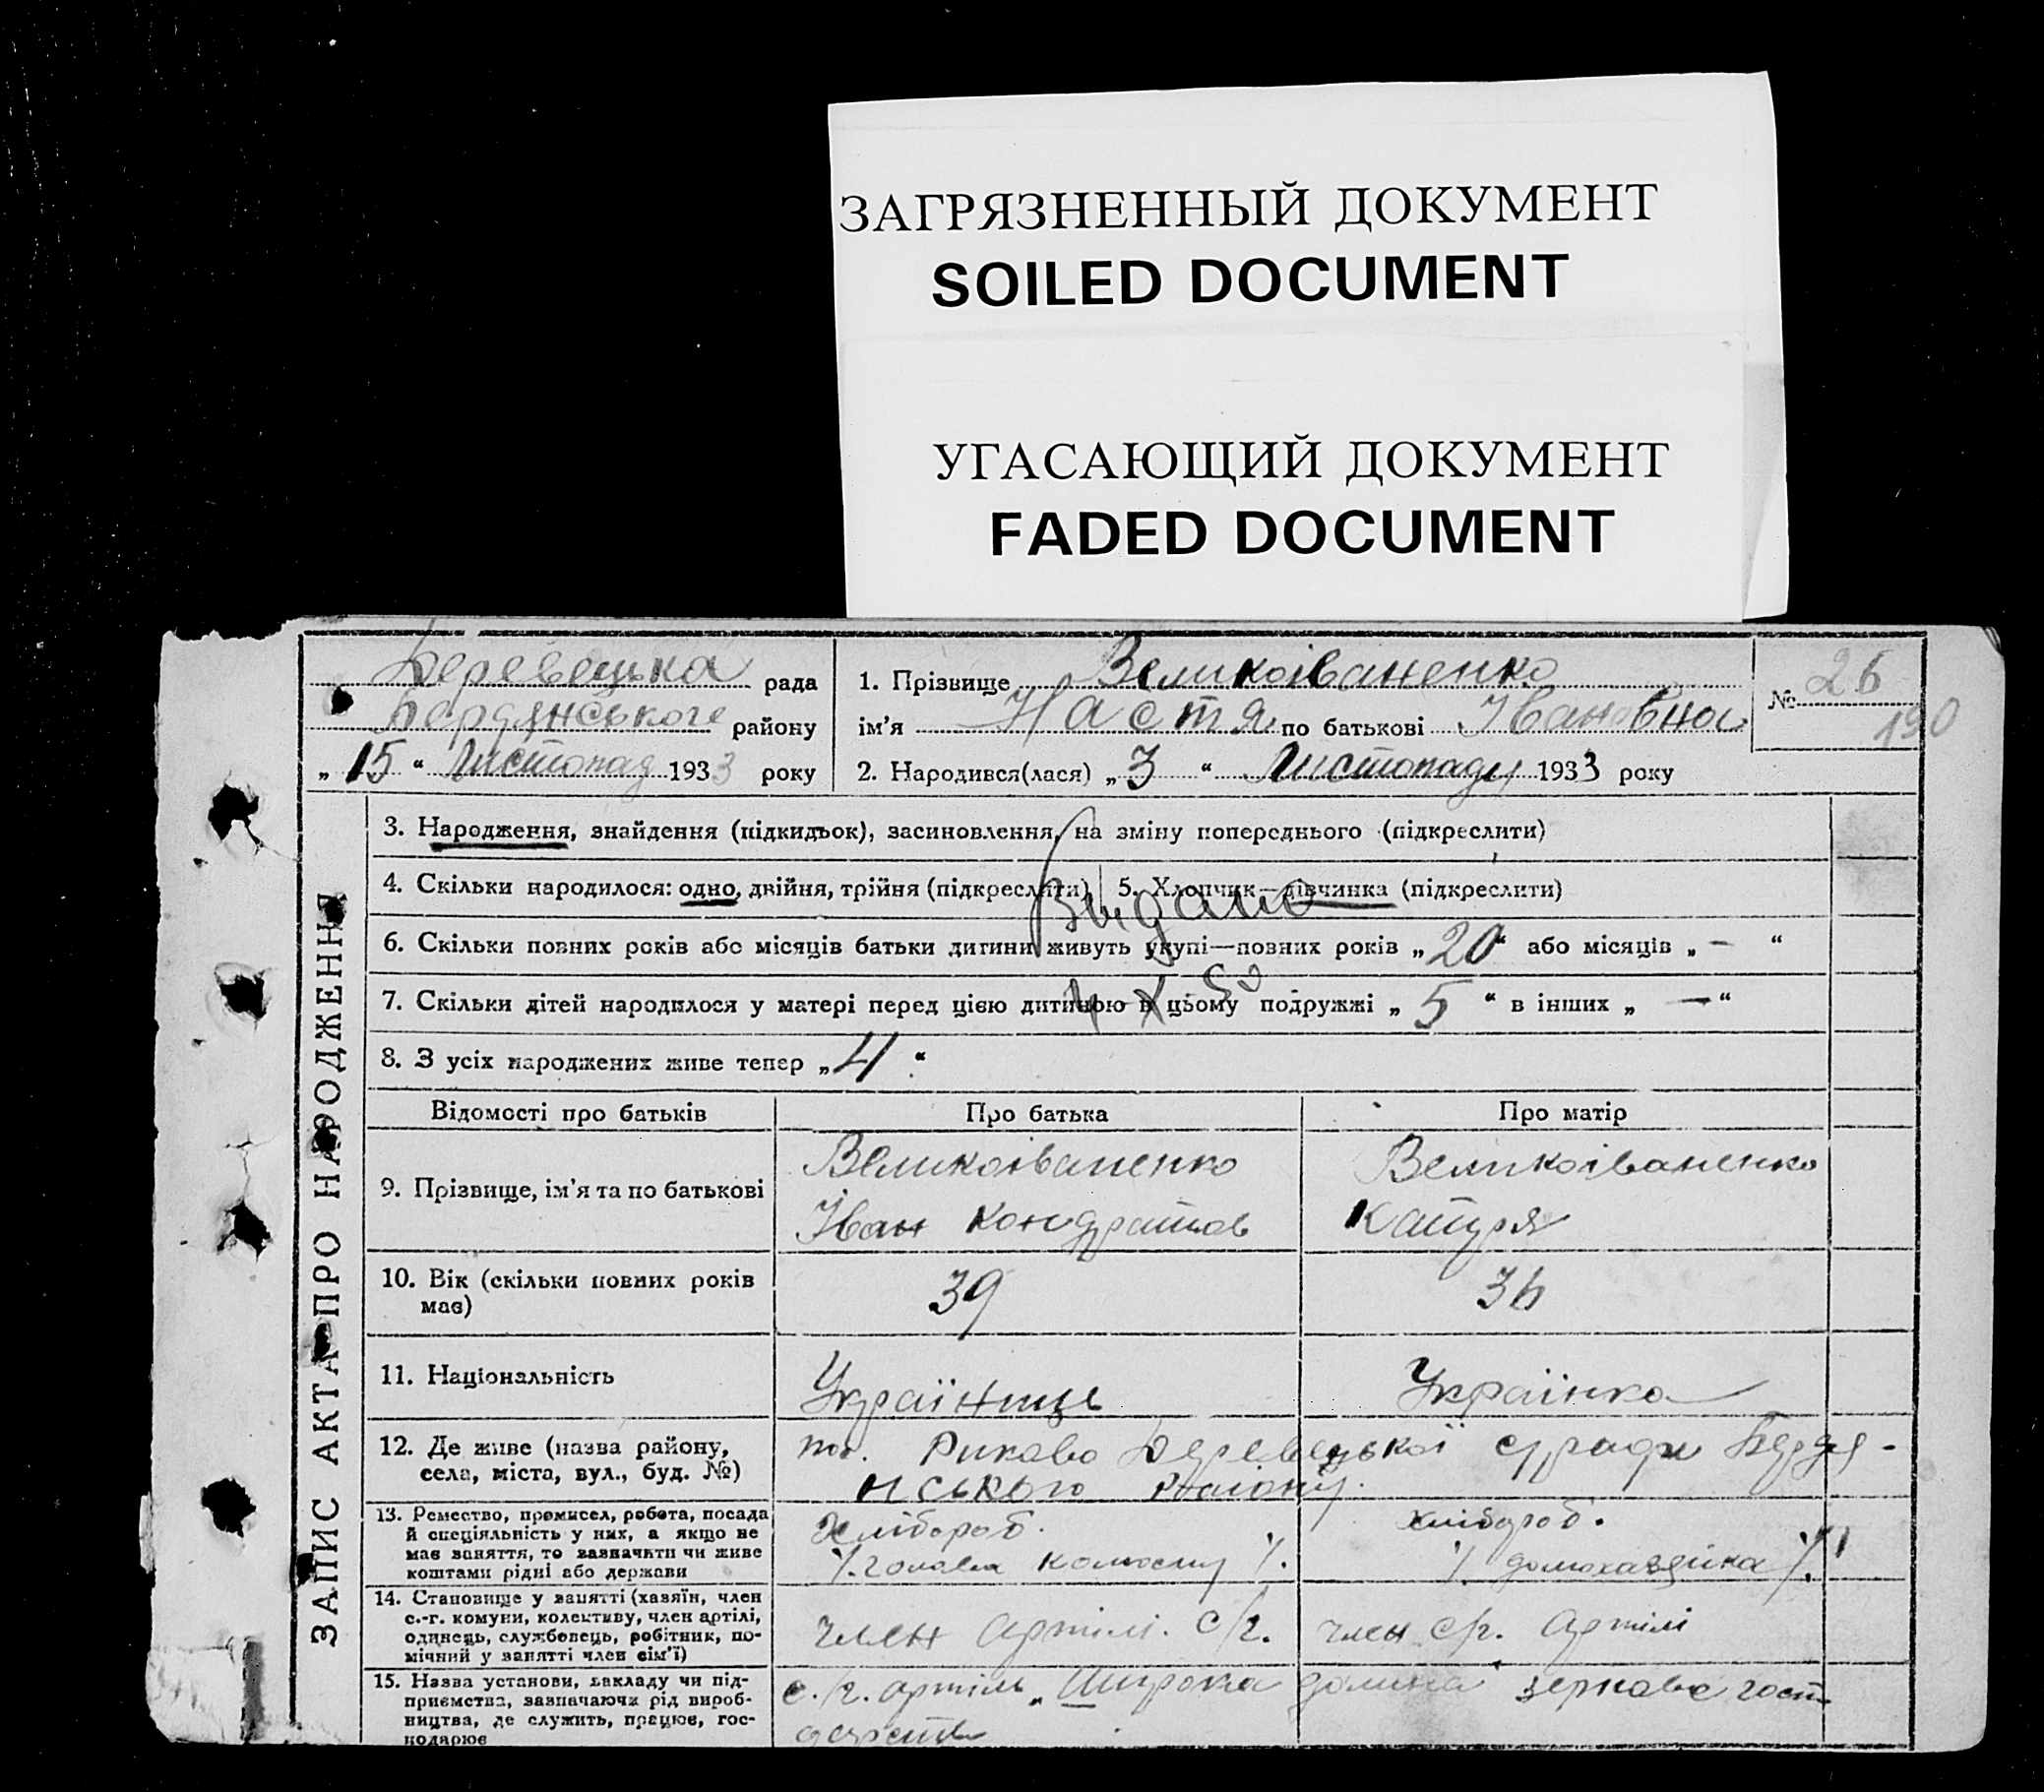 ЗАГРЯЗНЕННЫЙ ДОКУМЕНТ
SOILED DOCUMENT
УГАСАЮЩИЙ ДОКУМЕНТ
FADED DOCUMENT
Деревецька рада
Бердянського району
„ 15 “ Листопад 1933 року
1. Прізвище Великоіваненко
ім'я Настя по батькові Івановна
2. Народився(лася) „ 3 “ Листопаду 1933 року
№ 26
190
ЗАПИС АКТА ПРО НАРОДЖЕННЯ
3. Народження, знайдення (підкидьок), засиновлення, на зміну попереднього (підкреслити)
4. Скільки народилося: одно, двійня, трійня (підкреслити) 5. Хлопчик—дівчинка (підкреслити)
Видано
6. Скільки повних років або місяців батьки дитини живуть укупі—повних років „ 20 “ або місяців „ — “
7. Скільки дітей народилося у матері перед цією дитиною в цьому подружжі „ 5 “ в інших „ — “
8. З усіх народжених живе тепер „ 4 “
Відомості про батьків Про батька Про матір
9. Прізвище, ім'я та по батькові
Великоіваненко
Іван Кондратов
Великоіваненко
Катуря
10. Вік (скільки повних років
має)
39
36
11. Національність
Українець
Українка
12. Де живе (назва району,
села, міста, вул., буд. №)
Риково Деревецької с/ради Бердя-
нського району.
13. Ремество, промисел, робота, посада
й спеціяльність у них, а якщо не
має заняття, то зазначити чи живе
коштами рідні або держави
Хлібороб.
голова колгоспу
хлібороб.
домохазяйка
14. Становище у занятті (хазяїн, член
с.-г. комуни, колективу, член артілі,
одинець, службовець, робітник, по-
мічний у занятті член сім'ї)
член артілі. с/г.
член с/г. артілі
15. Назва установи, закладу чи під-
приємства, зазначаючи рід вироб-
ництва, де служить, працює, гос-
подарює
с./г. артіль „Широка долина зернове госп-